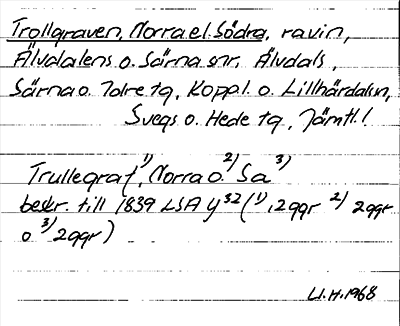 Trollgraven, Norra el. Södra, ravin,
Älvdalens o. Särna snr. Älvdals,
Särna o. Idre tg, Koppl. o. Lillhärdal sn,
Svegs o. Hede tg, Jämtl.!
Trullegraf¹⁾, Norra o.²⁾ Sa³⁾
beskr. till 1839 LSA y 32 (¹⁾, 2ggr ²⁾ 2ggr
o ³⁾ 2ggr)
U.H. 1968